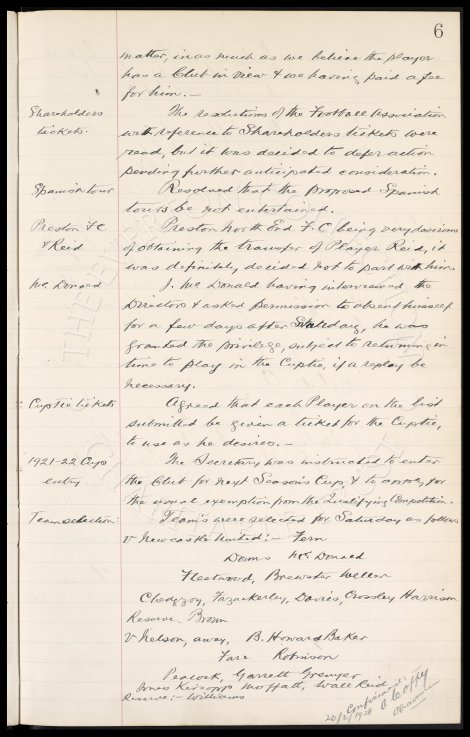 6
matter, inasmuch as we believe the player
has a Club in view & we having paid a fee
for him. —
Shareholders
tickets.
The resolutions of the Football Association
with reference to Shareholders tickets were
read, but it was decided to defer action
pending further anticipated consideration.
Spanish tour
Resolved that the proposed Spanish
tour be not entertained.
Preston F C
& Reid
Preston North End F. C. being very desirous
of obtaining the transfer of Player Reid, it
was definitely decided not to part with him
Mc Donald
J. Mc Donald having interviewed the
Directors & asked permission to absent himself
for a few days after Saturday, he was
granted the privilege, subject to returning in
time to play in the Cuptie, if a replay be
necessary.
Cup Tie tickets
Agreed that each Player on the list
submitted be given a ticket for the Cuptie,
to use as he desires. —
1921-22 Cup
entry
The Secretary was instructed to enter
the Club for next Season's Cup, & to apply for
the usual exemption from the Qualifying Competition.
Team selection:
Teams were selected for Saturday as follows
v Newcastle United: — Fern
Downs McDonald
Fleetwood, Brewster Weller
Chedgzoy, Fazackerley, Davies, Crossley Harrison
Reserve. Brown
v Nelson, away, B. Howard Baker
Fare Robinson
Peacock, Garrett Grenyer
Jones Kirsopp Moffatt, Wall Reid
Reserve: — Williams
Confirmed
20/2/1920
Chairman